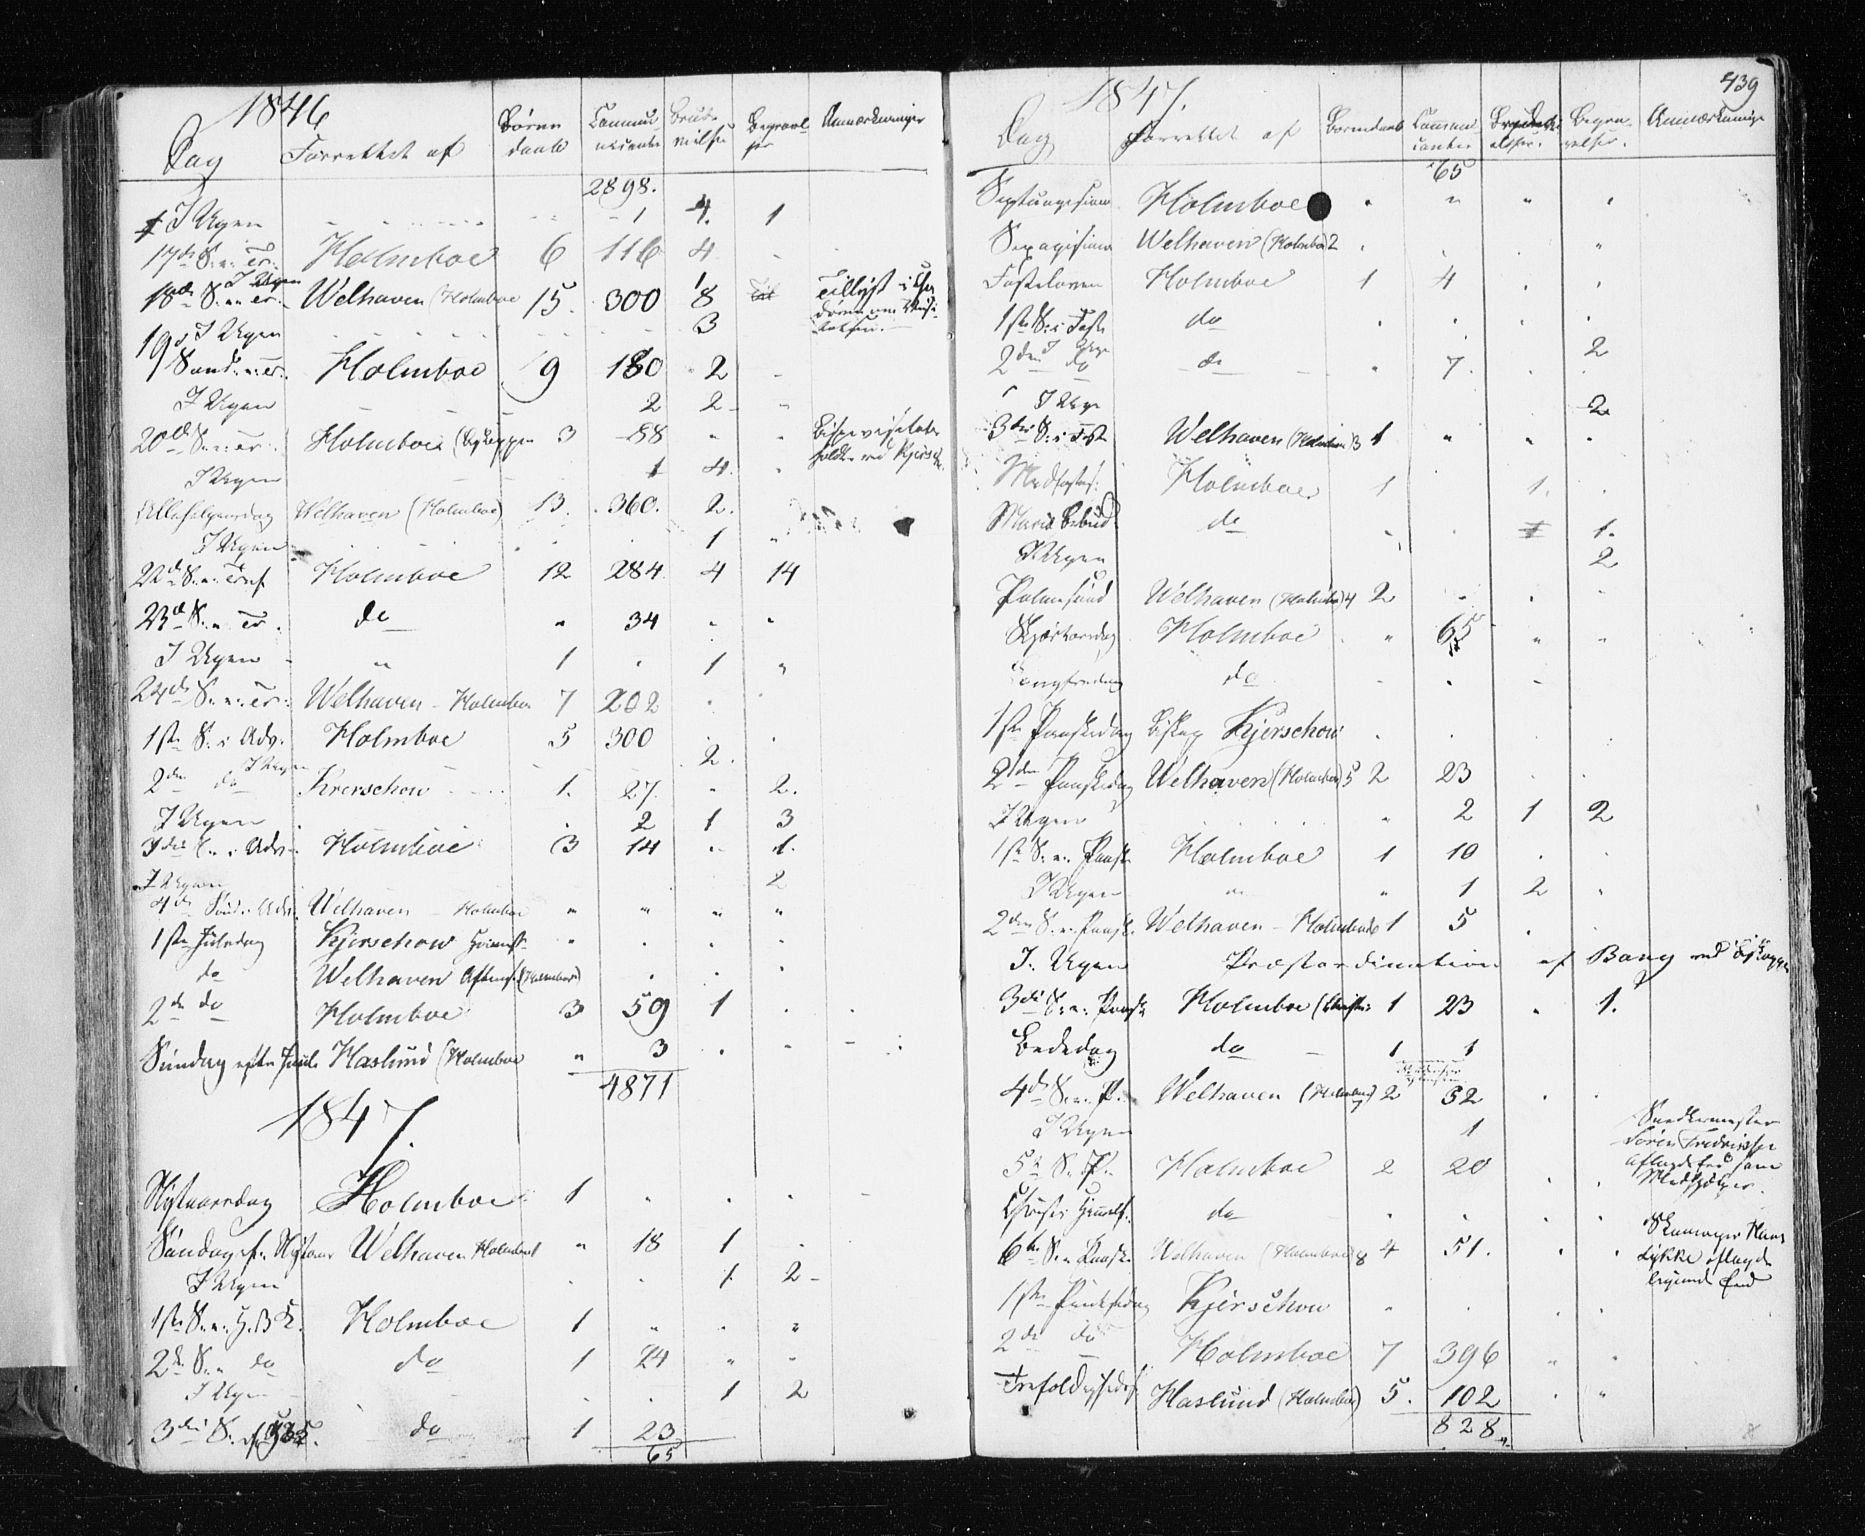 1846
Dag Forrettet af Børne daab Commu- nicanter Brude vielser Begravel- ser Anmærkninger
2898.
I Ugen 1 4. 1
17de S. e. Tr. Holmboe 6 116 4
I Ugen 1
18de S. e. Tr. Welhaven (Holmboe 15. 300 8
I Ugen 3
19de Sønd. e. Tr. Holmboe 9 180 2
I Ugen 2 2
20de S. e. Tr. Holmboe (Biskoppen 3 88 Bispevisitats
I Ugen 1 4. holdt ved Kjerschow
Allehelgensdag Welhaven (Holmboe) 13. 360. 2.
I Ugen 1
22de S. e. Tref. Holmboe 12 284 4 14
23de S. e. Tr. do 34
I Ugen " 1 1 "
24de S. e. Tr. Welhaven - Holmboe 7 202
1ste S. i Adv. Holmboe 5 300
I Ugen 2.
2den do Kjerschow 1. 27. " 2.
I Ugen 2 1 3
3die S. i Adv. Holmboe 3 14 1.
I Ugen 2
4de Sønd. i Adv. Welhaven - Holmboe " " " "
1ste Juledag Kjerschow "
do Welhaven Aftens. (Holmboe)
2den do Holmboe 3 59 1
Søndag efter Juul Haslund (Holmboe " 3
4871
1847.
Nytaarsdag Holmboe 1
Søndag ef. Nytaar Welhaven Holmboe 1 " 18 1
I Ugen 1 2
1ste S. e. H. 3 K. Holmboe 1 " "
2den S. e. do do 1 24 "
I Ugen 1 2
3die S. e. H. 3 K. do 1 23
65
1847. 439
Dag Forrettet af Børnedaab Communi- canter Begra- velser. Anmærkninger
65
Septuagesima Holmboe
Sexagesima Welhaven (Holmboe) 2
Fastelavn Holmboe 1 4
1ste S. i Faste do
I Ugen 2
2den do do 7.
I Ugen 2
3die S. i Faste Welhaven (Holmboe) 3 1
Midfaste Holmboe 1 1.
Mariæ Bebud. do 1.
I Ugen 2
Palmesønd Welhaven (Holmboe) 4 2
Skjærtorsdag Holmboe 65
Langfredag do
1ste Paaskedag Biskop Kjerschow
2den Paaskedag Welhaven (Holmboe) 5 2 23
I Ugen 2 1 2
1ste S. e. Paaske Holmboe 1 10
I Ugen " " 1 2 "
2den S. e. Paaske Welhaven - Holmboe 6 1 5
I Ugen Præsteordination af Bang ved Biskoppen
3die S. e. Paaske Holmboe 1 23 1.
Bededag do 1 1
4de S. e. P. Welhaven (Holmboe) 7 2 52
I Ugen 1
5te S. e. P. Holmboe 2 20
Snedkermester
Søren Fredrichsen
aflagde Eed som
Medhjelper.
Christi Himmelf. do
6te S. e. Paaske Welhaven (Holmboe) 8 4 51.
Skomager Hans
Lykke aflagde
lignende Eed
1ste Pintsedag Kjerschow
2den do Holmboe 7 396
Trefoldighedsf. Haslund (Holmboe) 5. 102
828